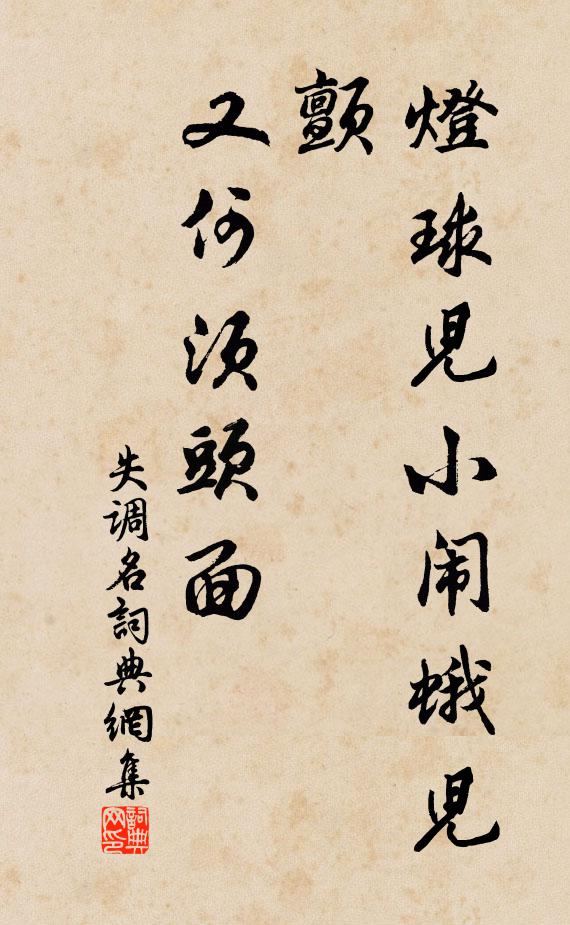 燈球兒小闹蛾兒
顫
又何須頭面
失调名詞典網集
詞典网印